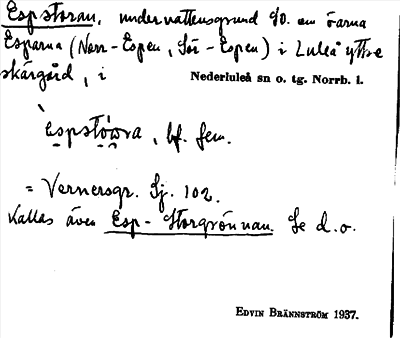 Espstoran, undervattensgrund s/o. om öarna
Esparna (Norr-Espen, Sör-Espen) i Luleå yttre
skärgård, i Nederluleå sn o. tg. Norrb. l.
bf. fem.
= Vernersgr. Sj. 102.
Kallas även Esp-Storgrönnan. Se d.o.
EDVIN BRÄNNSTRÖM 1937.